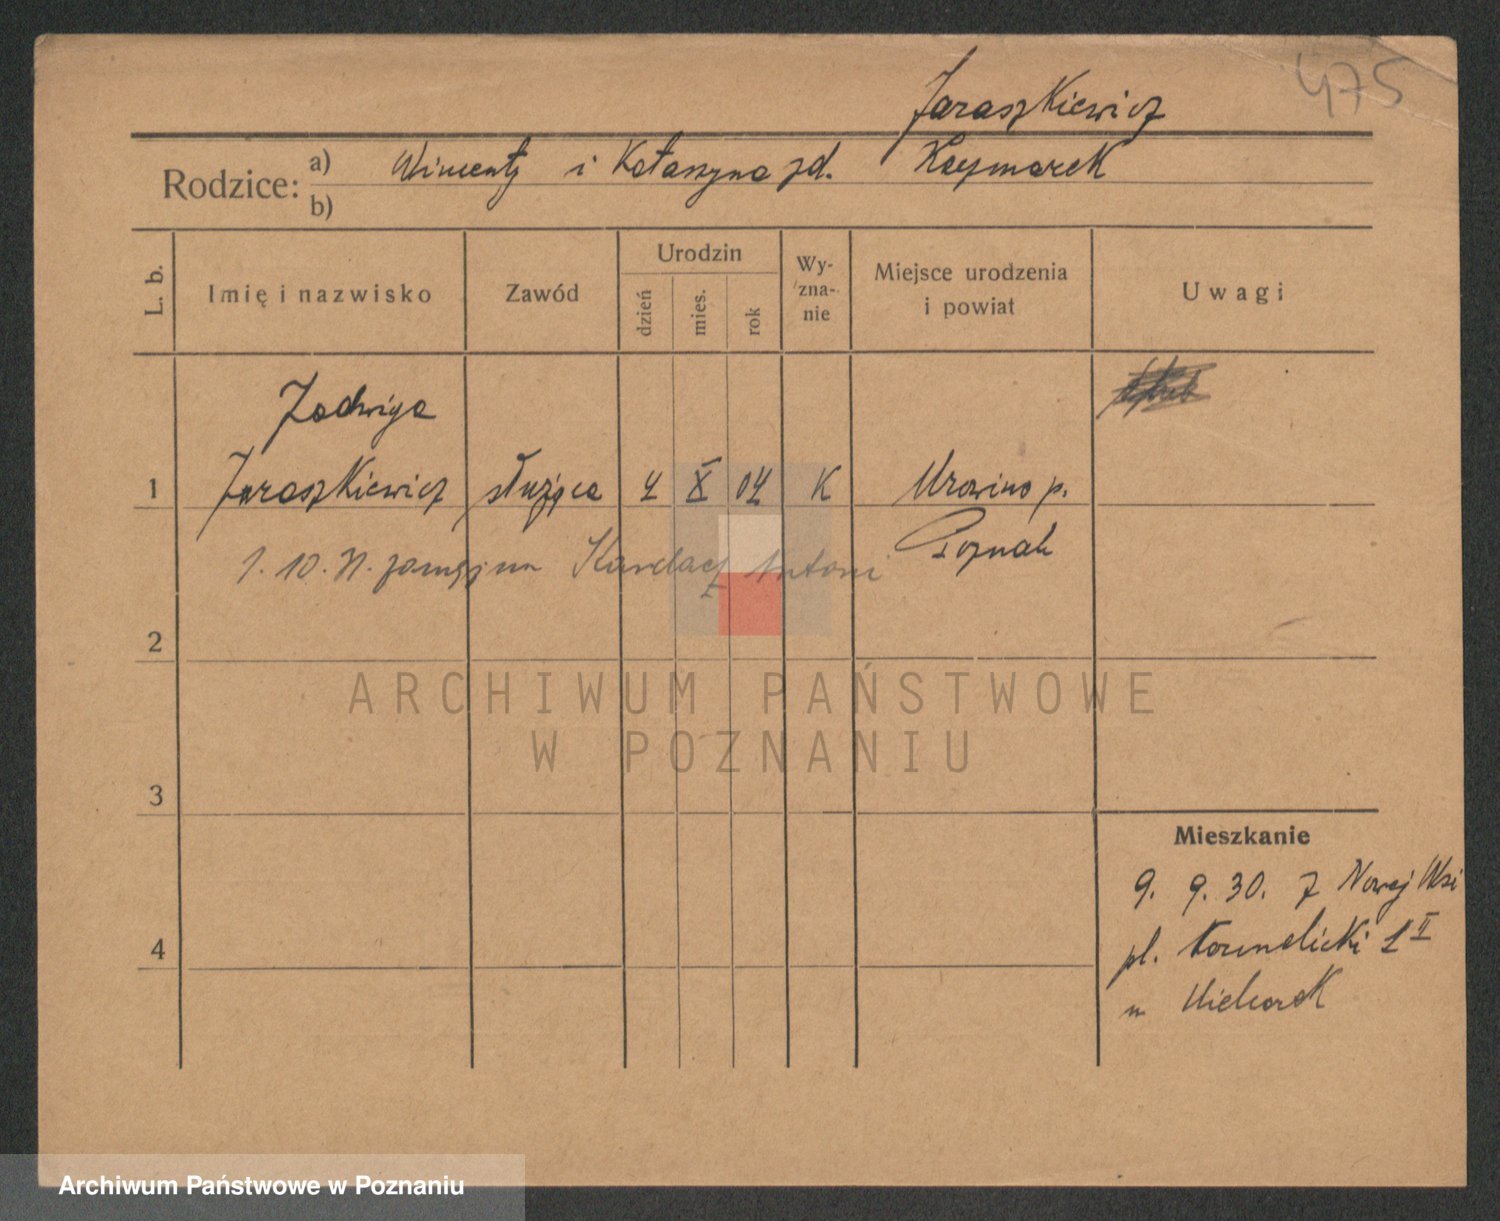 475
Jaraszkiewicz
Rodzice: a) Wincenty i Katarzyna zd. Kaczmarek
b)
L. b.
Imię i nazwisko
Zawód
Urodzin
dzień
mies.
rok
Wy-
zna-
nie
Miejsce urodzenia
i powiat
Uwagi
Jadwiga
1 Jaraszkiewicz służąca 4 X 04 K Mrowino p.
Poznań
1. 10. zamęż Antoni
2
ARCHIWUM PAŃSTWOWE
W POZNANIU
3
Mieszkanie
9. 9. 30. z Nowej Wsi
4
pl. Karmelicki 1 II
Archiwum Państwowe w Poznaniu